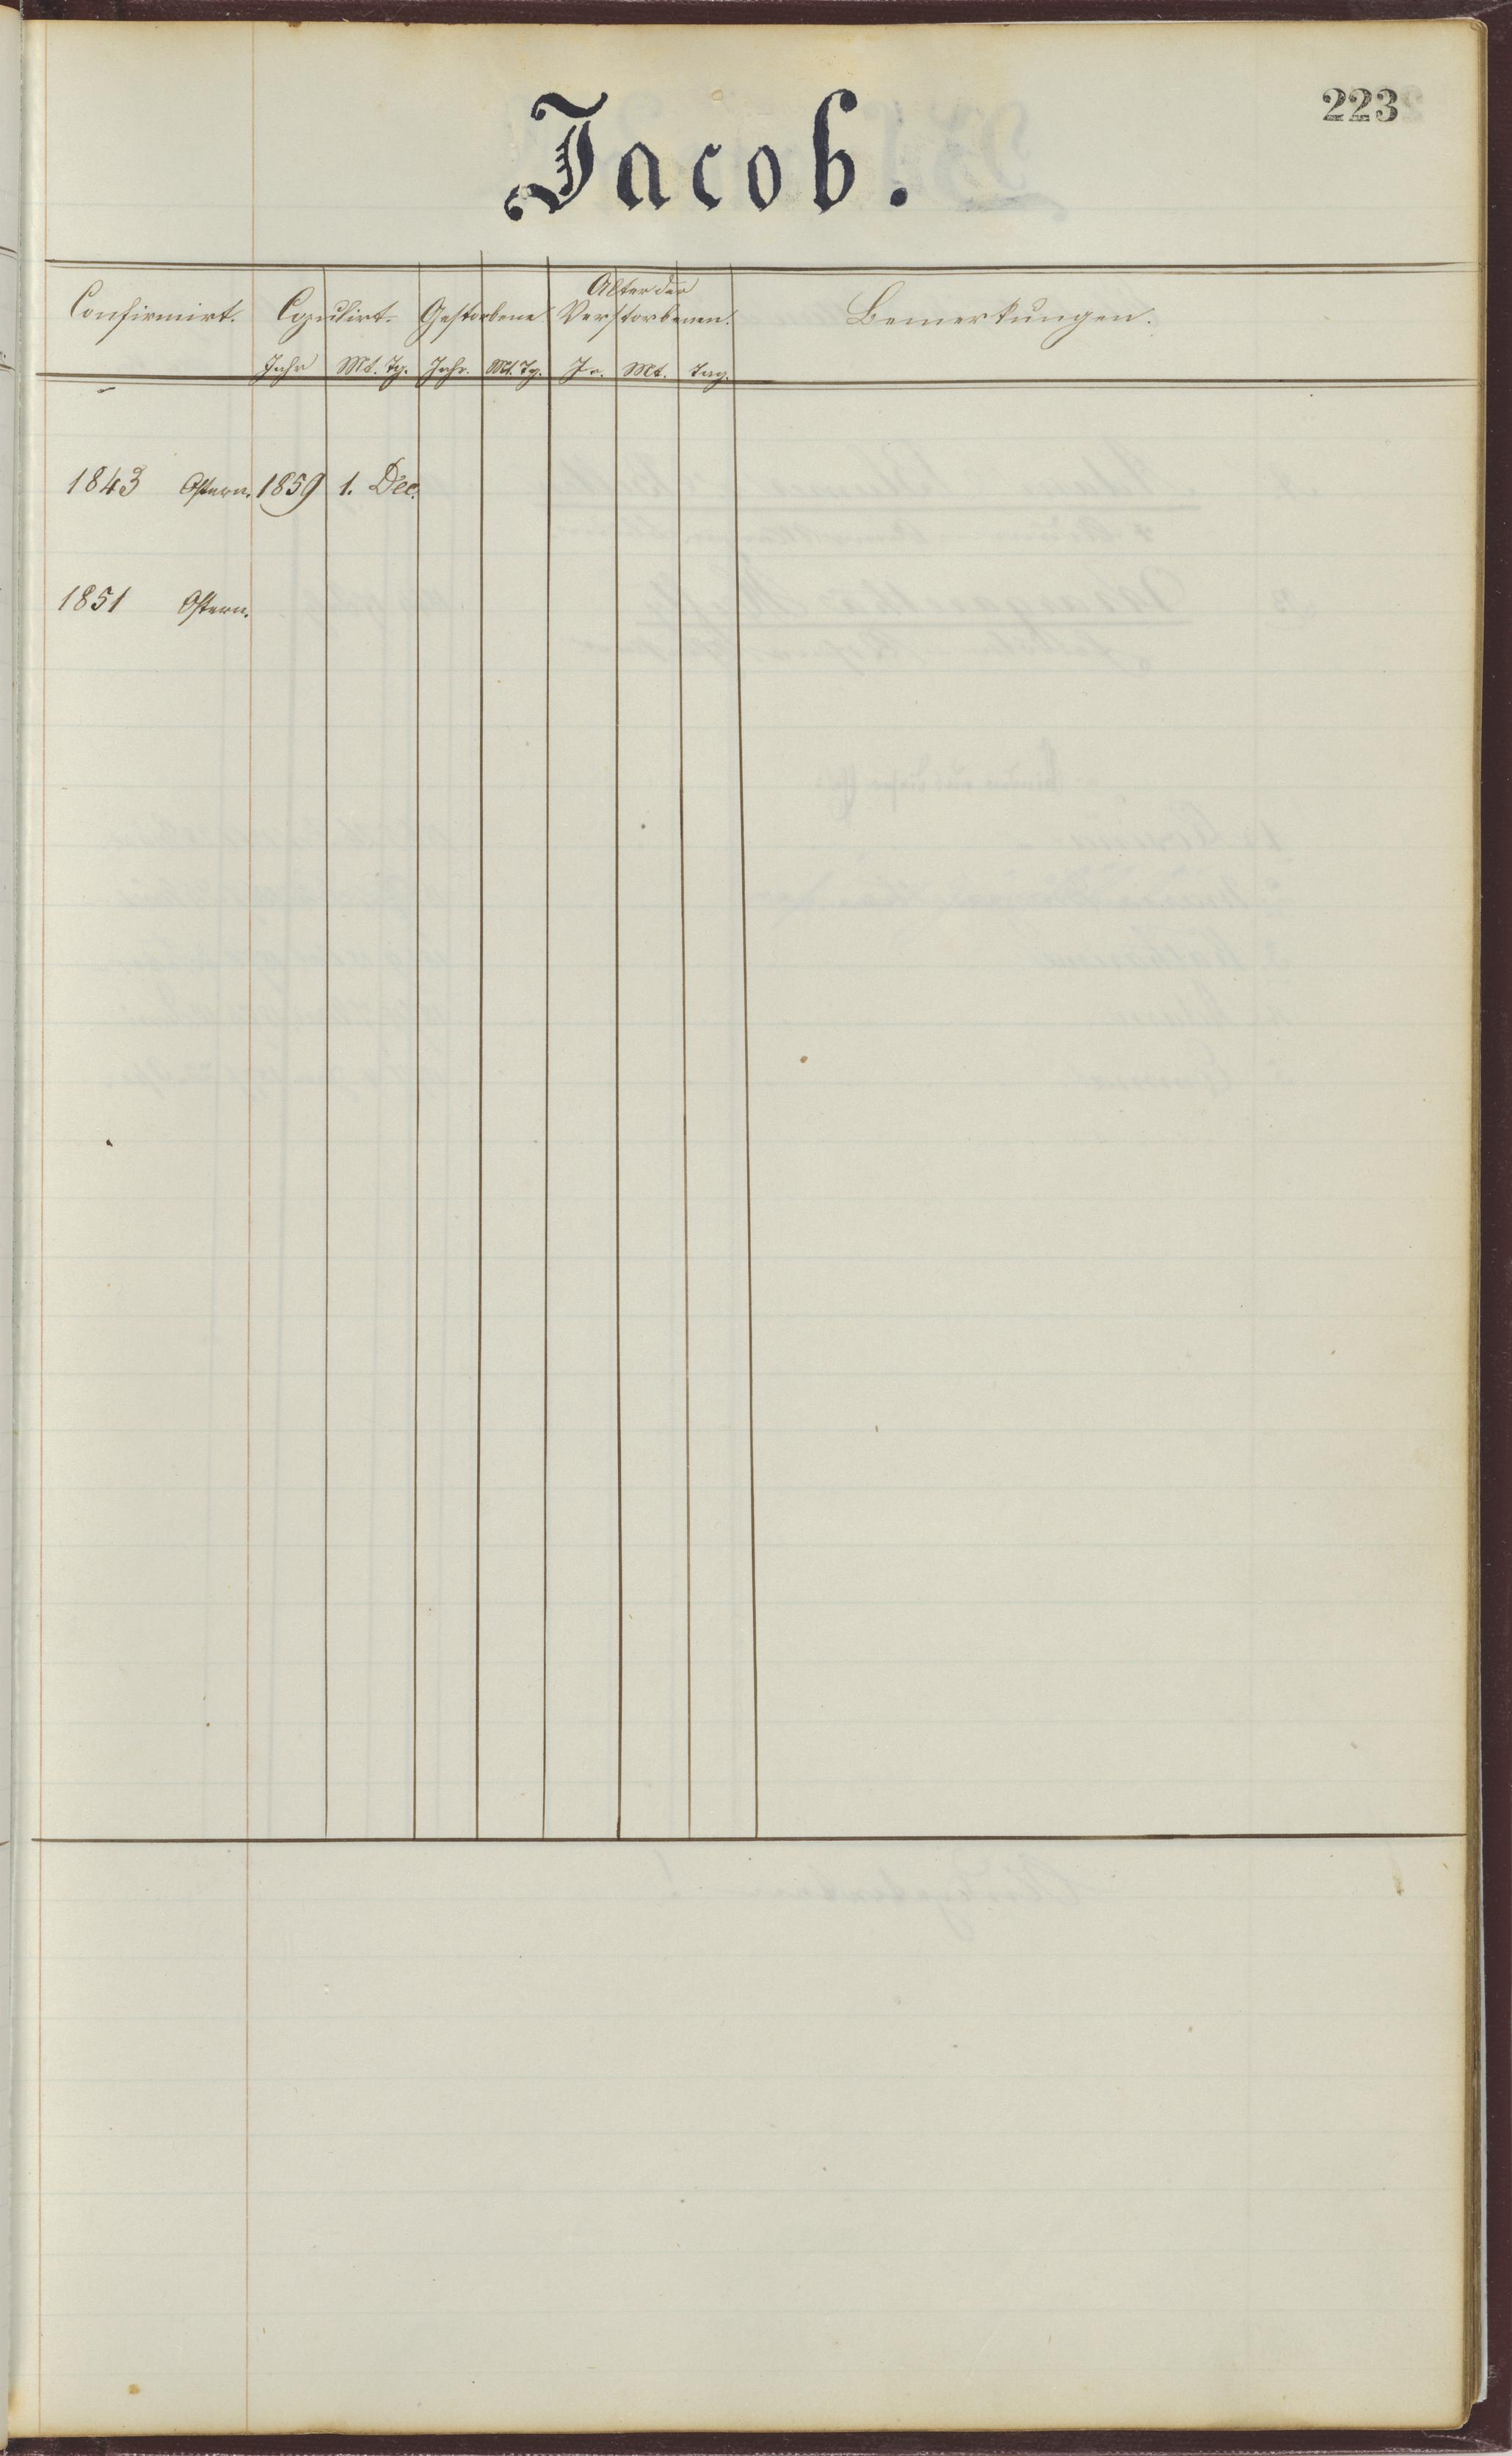 223
Jacob.
Confirmirt. Copulirt. Gestorbene Alter der Verstorbenen. Bemerkungen.
Jahr Mt. Tg. Jahr. Mt. Tg. Jr. Mt. Tag.
1843 Ostern. 1859 1. Dec.
1851 Ostern.